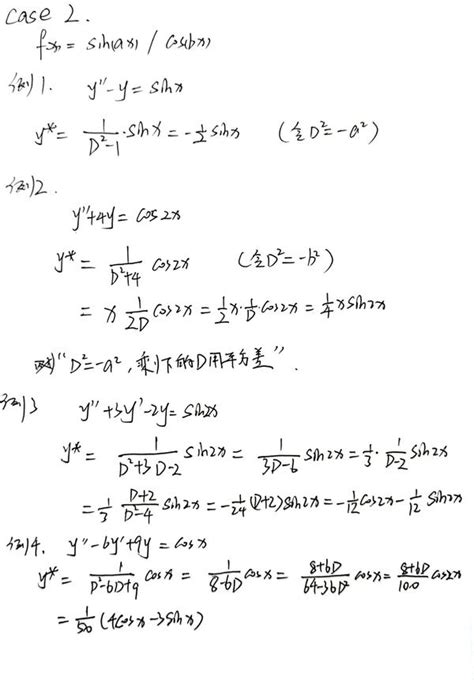 case 2.
f(x) = sin(ax) / cos(bx)
例1. y''-y = sinx
y* = 1/(D²-1) · sinx = -1/2 sinx (令D²=-a²)
例2.
y''+4y = cos2x
y* = 1/(D²+4) cos2x (令D²=-b²)
= x 1/(2D) cos2x = 1/2 x · 1/D · cos2x = 1/4 x sin2x
"D²=-a², 剩下的D用平方差".
例3 y''+3y'-2y = sin2x
y* = 1/(D²+3D-2) sin2x = 1/(3D-6) sin2x = 1/3 · 1/(D-2) sin2x
= 1/3 (D+2)/(D²-4) sin2x = -1/24 (D+2) sin2x = -1/12 cos2x - 1/12 sin2x
例4. y''-6y'+9y = cosx
y* = 1/(D²-6D+9) cosx = 1/(8-6D) cosx = (8+6D)/(64-36D²) cosx = (8+6D)/100 cosx
= 1/50 (4cosx-3sinx)